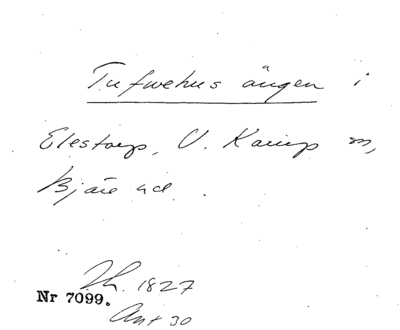 Tufwehus ängen i
Elestorp, V. Karup sn,
Bjäre hd.
Lh. 1827
Nr 7099.
Ant 30